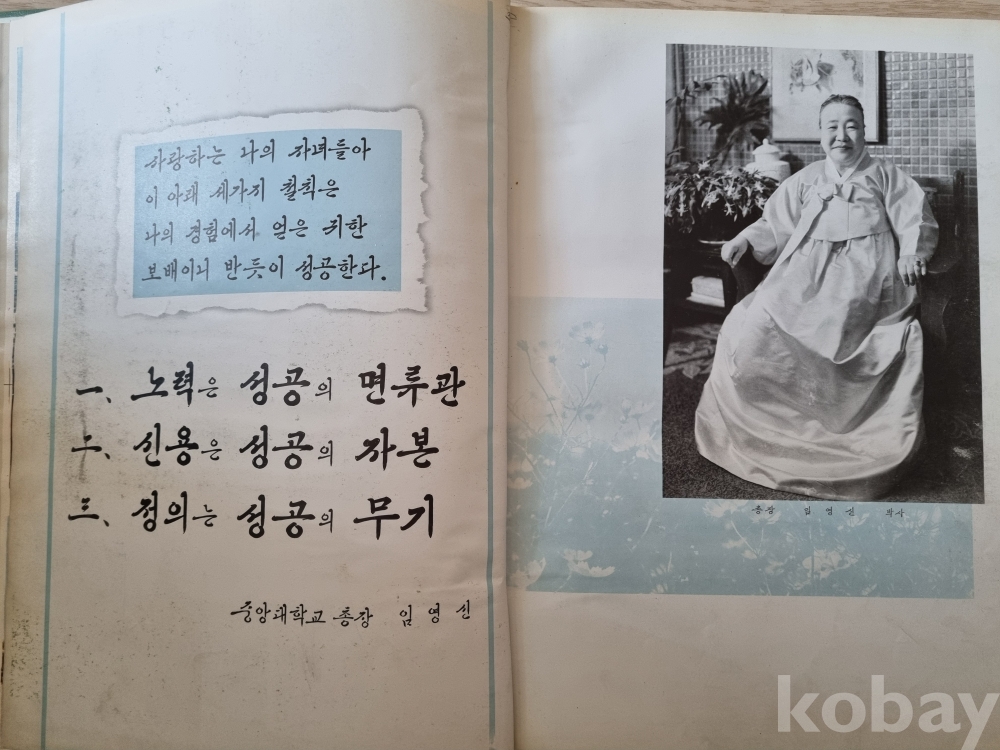 사랑하는 나의 자녀들아
이 아래 세가지 철칙은
나의 경험에서 얻은 귀한
보배이니 반듯이 성공한다.
一、 노력은 성공의 면류관
二、 신용은 성공의 자본
三、 정의는 성공의 무기
중앙대학교 총장 임영신
총장 임영신 박사
kobay